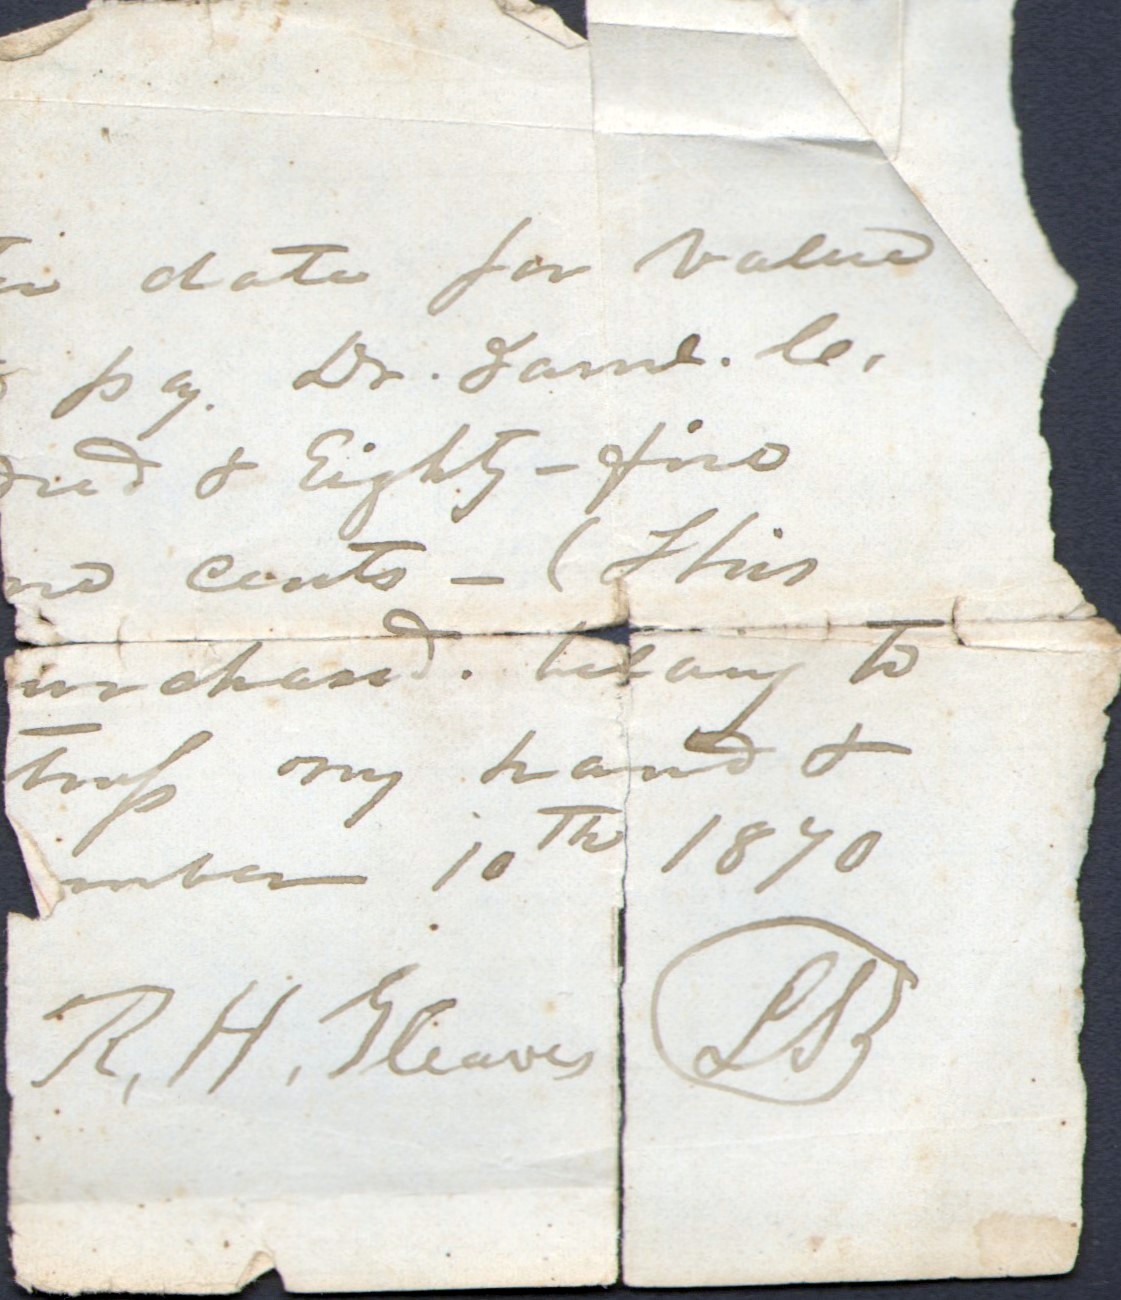 ter date for value
pay. Dr. Saml. C.
dred & Eighty-five
cents – (This
purchased. belong to
my hand &
mber 10th 1870
R. H. Gleaves LS